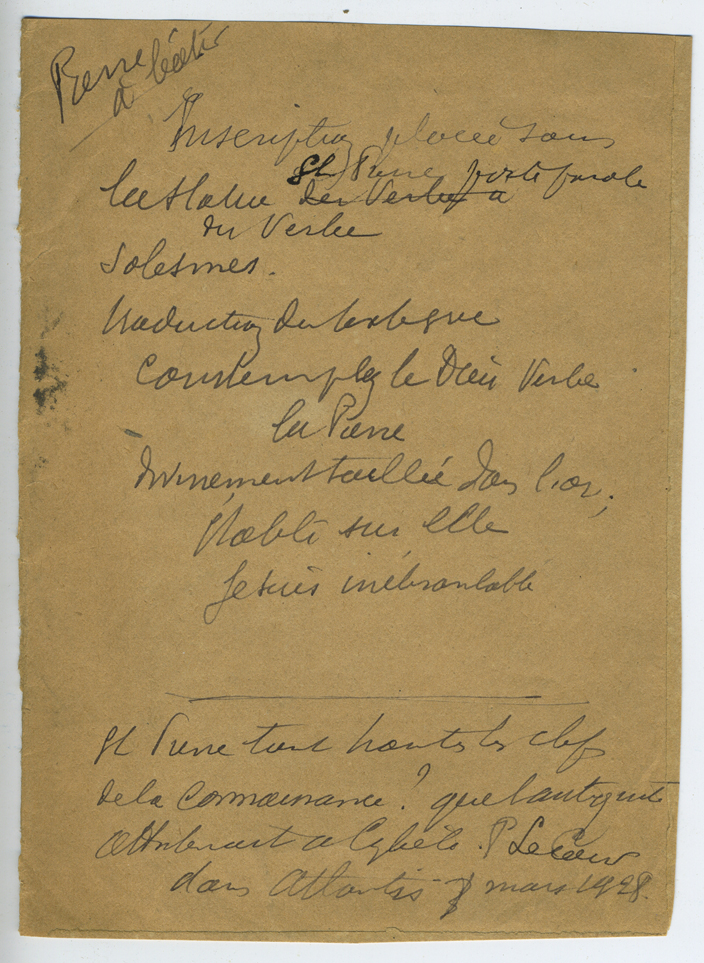 Pierre
à
Inscription placée sous
la statue des Verbe a St Pierre porte parole
du Verbe
Solesmes.
traduction du texte grec
Contemplez le Dieu Verbe
la Pierre
divinement taillée dans l'or;
établi sur elle
Je suis inébranlable
St Pierre tient hautes les clefs
de la connaissance? que l'antiquité
attribuait à Cybèle. P Le Cour
dans Atlantis mars 1928.